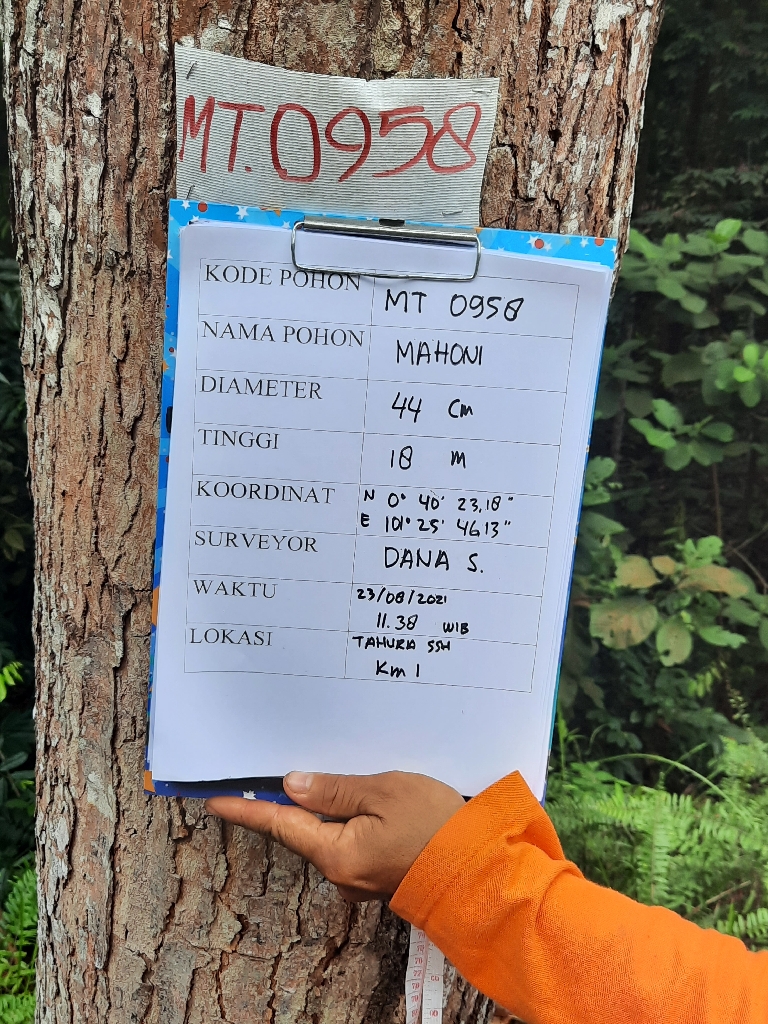 MT.0958
KODE POHON MT 0958
NAMA POHON MAHONI
DIAMETER 44 Cm
TINGGI 18 m
KOORDINAT N 0° 40' 23,18"
E 101° 25' 46,13"
SURVEYOR DANA S.
WAKTU 23/08/2021
11.38 WIB
LOKASI TAHURA SSH
Km 1